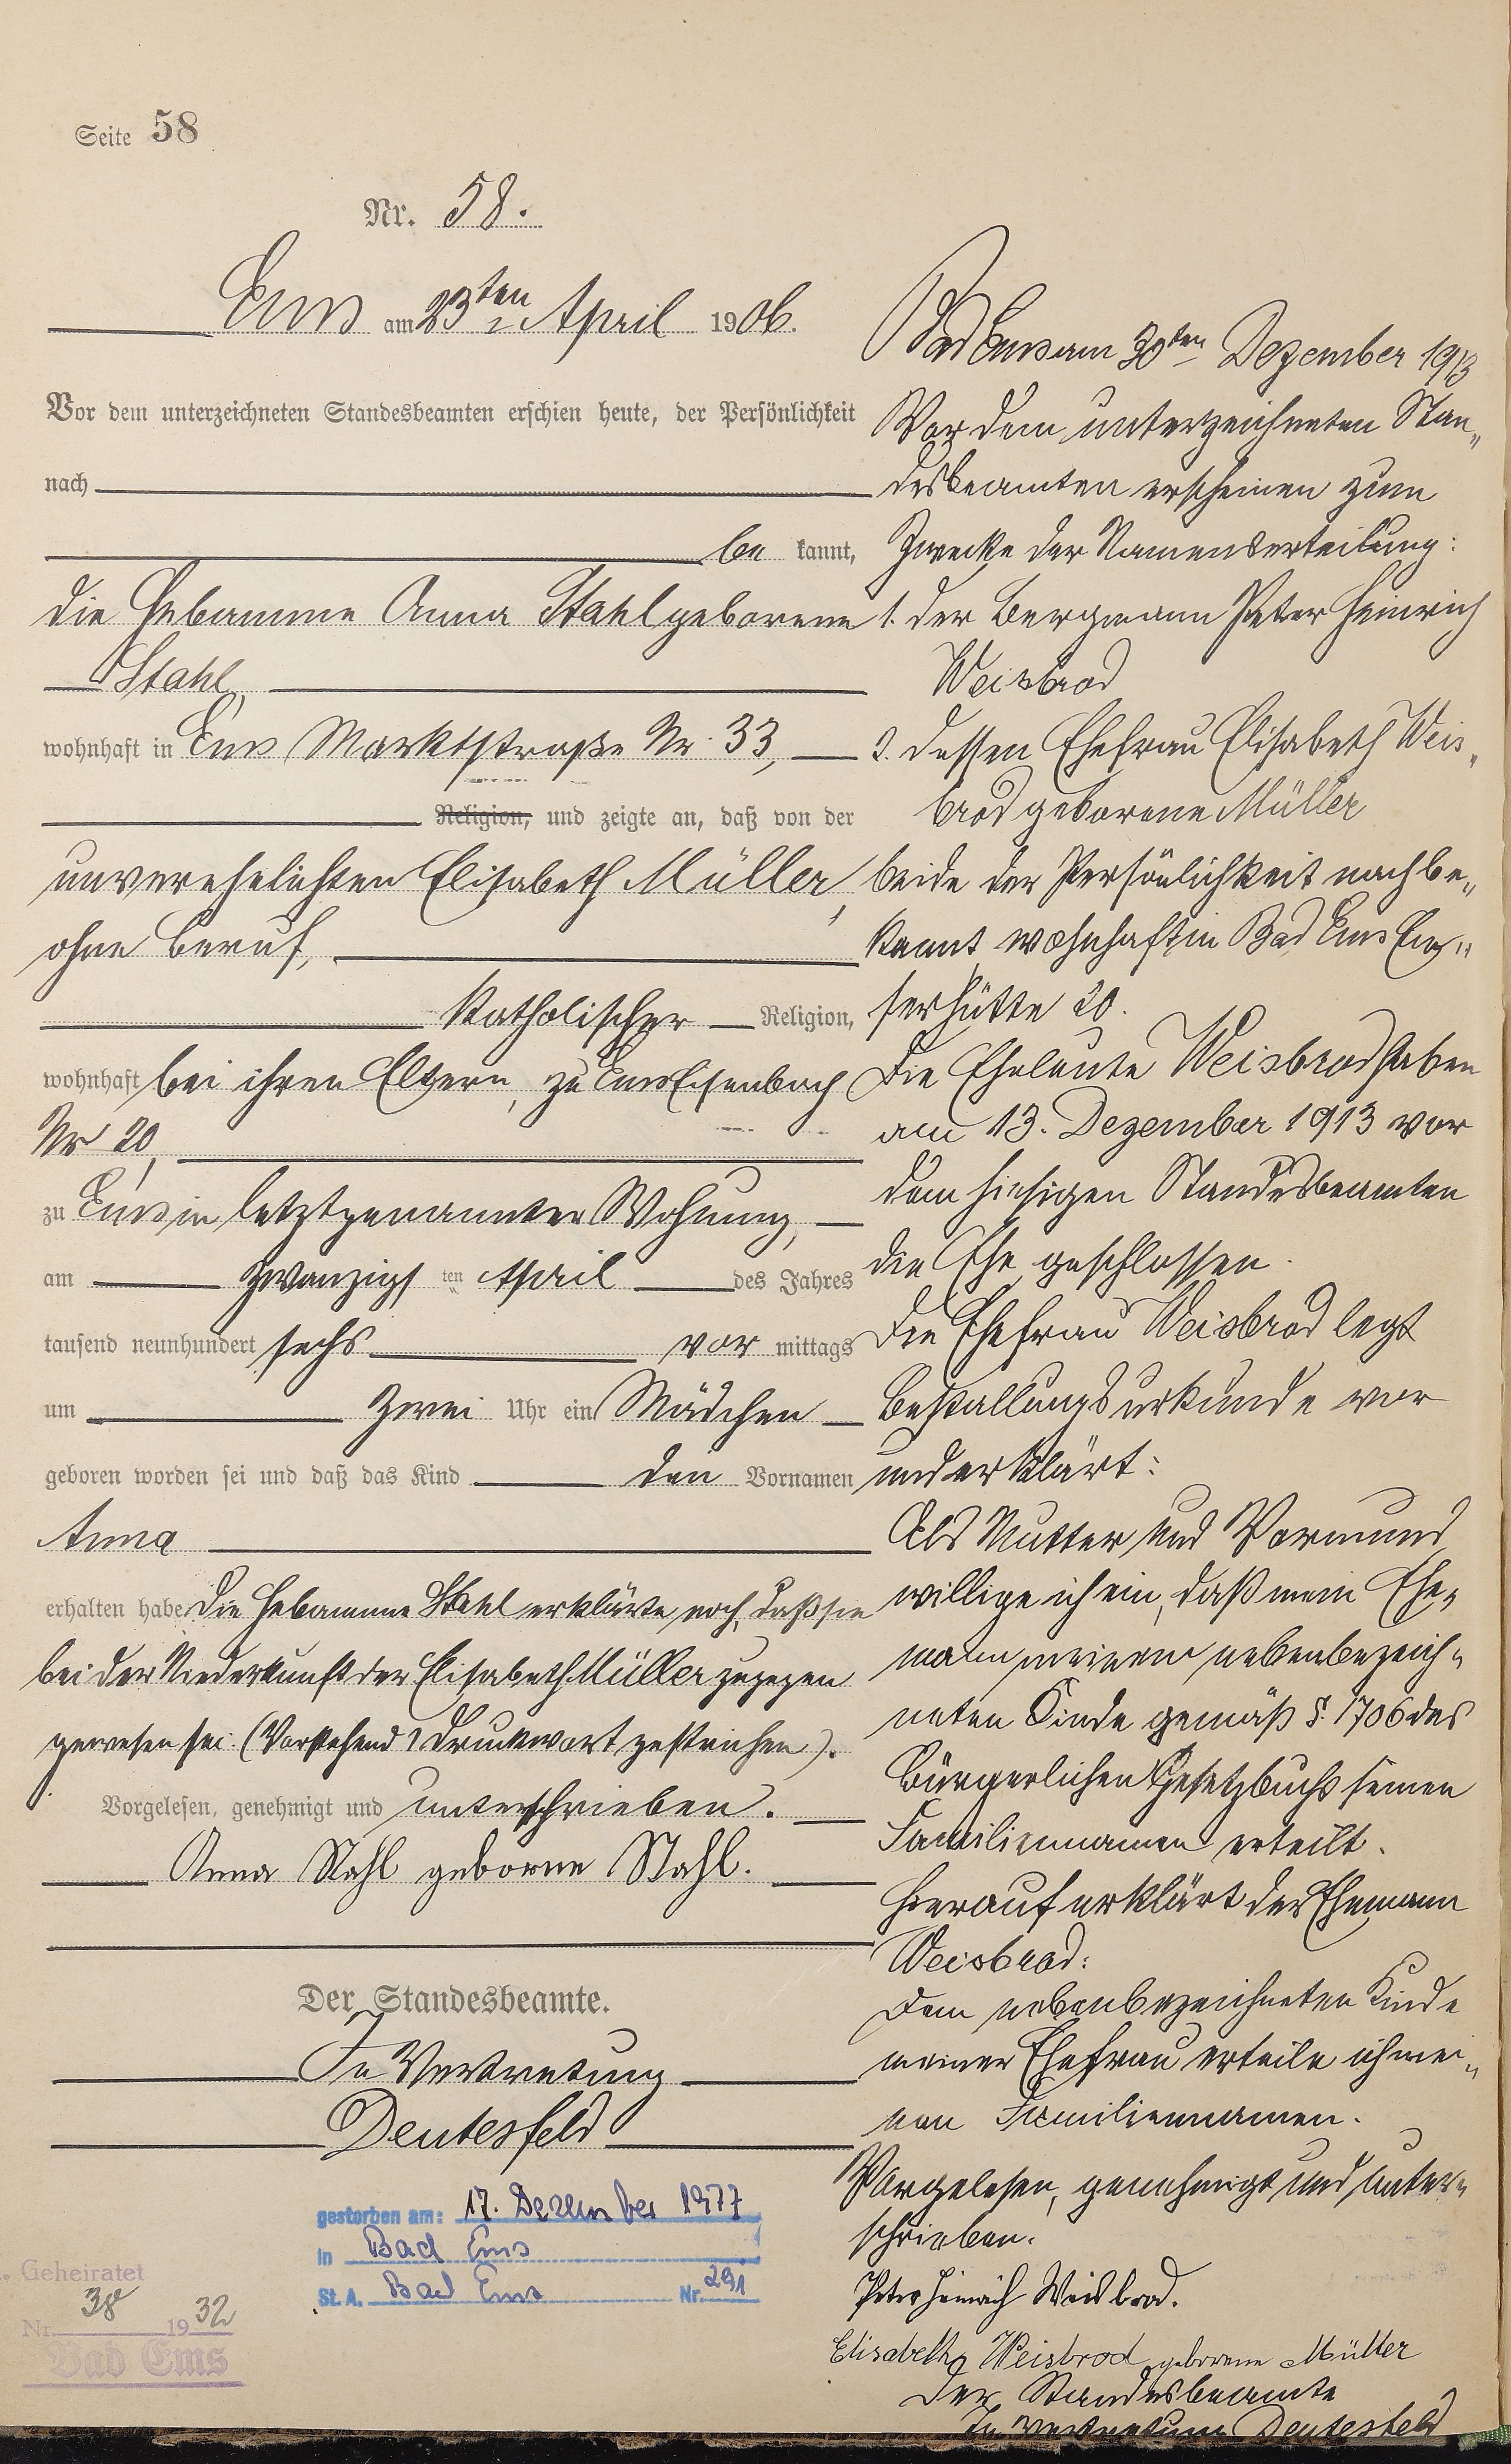 Seite 58
Nr. 58.
Ems am 23ten April 1906.
Vor dem unterzeichneten Standesbeamten erschien heute, der Persönlichkeit
nach
be kannt,
die Hebamme Anna Stahl geborene
Stahl,
wohnhaft in Ems Marktstraße Nr. 33,
Religion, und zeigte an, daß von der
unverehelichten Elisabeth Müller,
ohne Beruf,
katholischer Religion,
wohnhaft bei ihren Eltern, zu Ems Eisenbach
Nr 20,
zu Ems in letztgenannter Wohnung,
am zwanzigs ten April des Jahres
tausend neunhundert sechs vor mittags
um zwei Uhr ein Mädchen
geboren worden sei und daß das Kind den Vornamen
Anna
erhalten habe. Die Hebamme Stahl erklärte noch, daß sie
bei der Niederkunft der Elisabeth Müller zugegen
gewesen sei. (Vorstehend 1 Druckwort gestrichen).
Vorgelesen, genehmigt und unterschrieben.
Anna Stahl geborne Stahl.
Der Standesbeamte.
In Vertretung
Deutesfeld
gestorben am: 17. Dezember 1977
in Bad Ems
St. A. Bad Ems Nr. 291
Geheiratet
Nr. 38 1932
Bad Ems
Bad Ems am 30ten Dezember 1913
Vor dem unterzeichneten Stan„
desbeamten erscheinen zum
Zwecke der Namenserteilung:
1. der Bergmann Peter Heinrich
Weisbrod
2. dessen Ehefrau Elisabeth Weis„
brod geborene Müller
beide der Persönlichkeit nach be„
kannt wohnhaft in Bad Ems Em„
serhütte 20.
Die Eheleute Weisbrod haben
am 13. Dezember 1913 vor
dem hiesigen Standesbeamten
die Ehe geschlossen.
Die Ehefrau Weisbrod legt
Bestallungsurkunde vor
und erklärt:
Als Mutter und Vormund
willige ich ein, daß mein Ehe„
mann meinem nebenbezeich„
neten Kinde gemäß §. 1706 des
Bürgerlichen Gesetzbuchs seinen
Familiennamen erteilt.
Hierauf erklärt der Ehemann
Weisbrod:
Dem nebenbezeichneten Kinde
meiner Ehefrau erteile ich mei„
nen Familiennamen.
Vorgelesen, genehmigt und unter„
schrieben.
Peter Heinrich Weisbrod.
Elisabeth Weisbrod geborene Müller
Der Standesbeamte
In Vertretung Deutesfeld